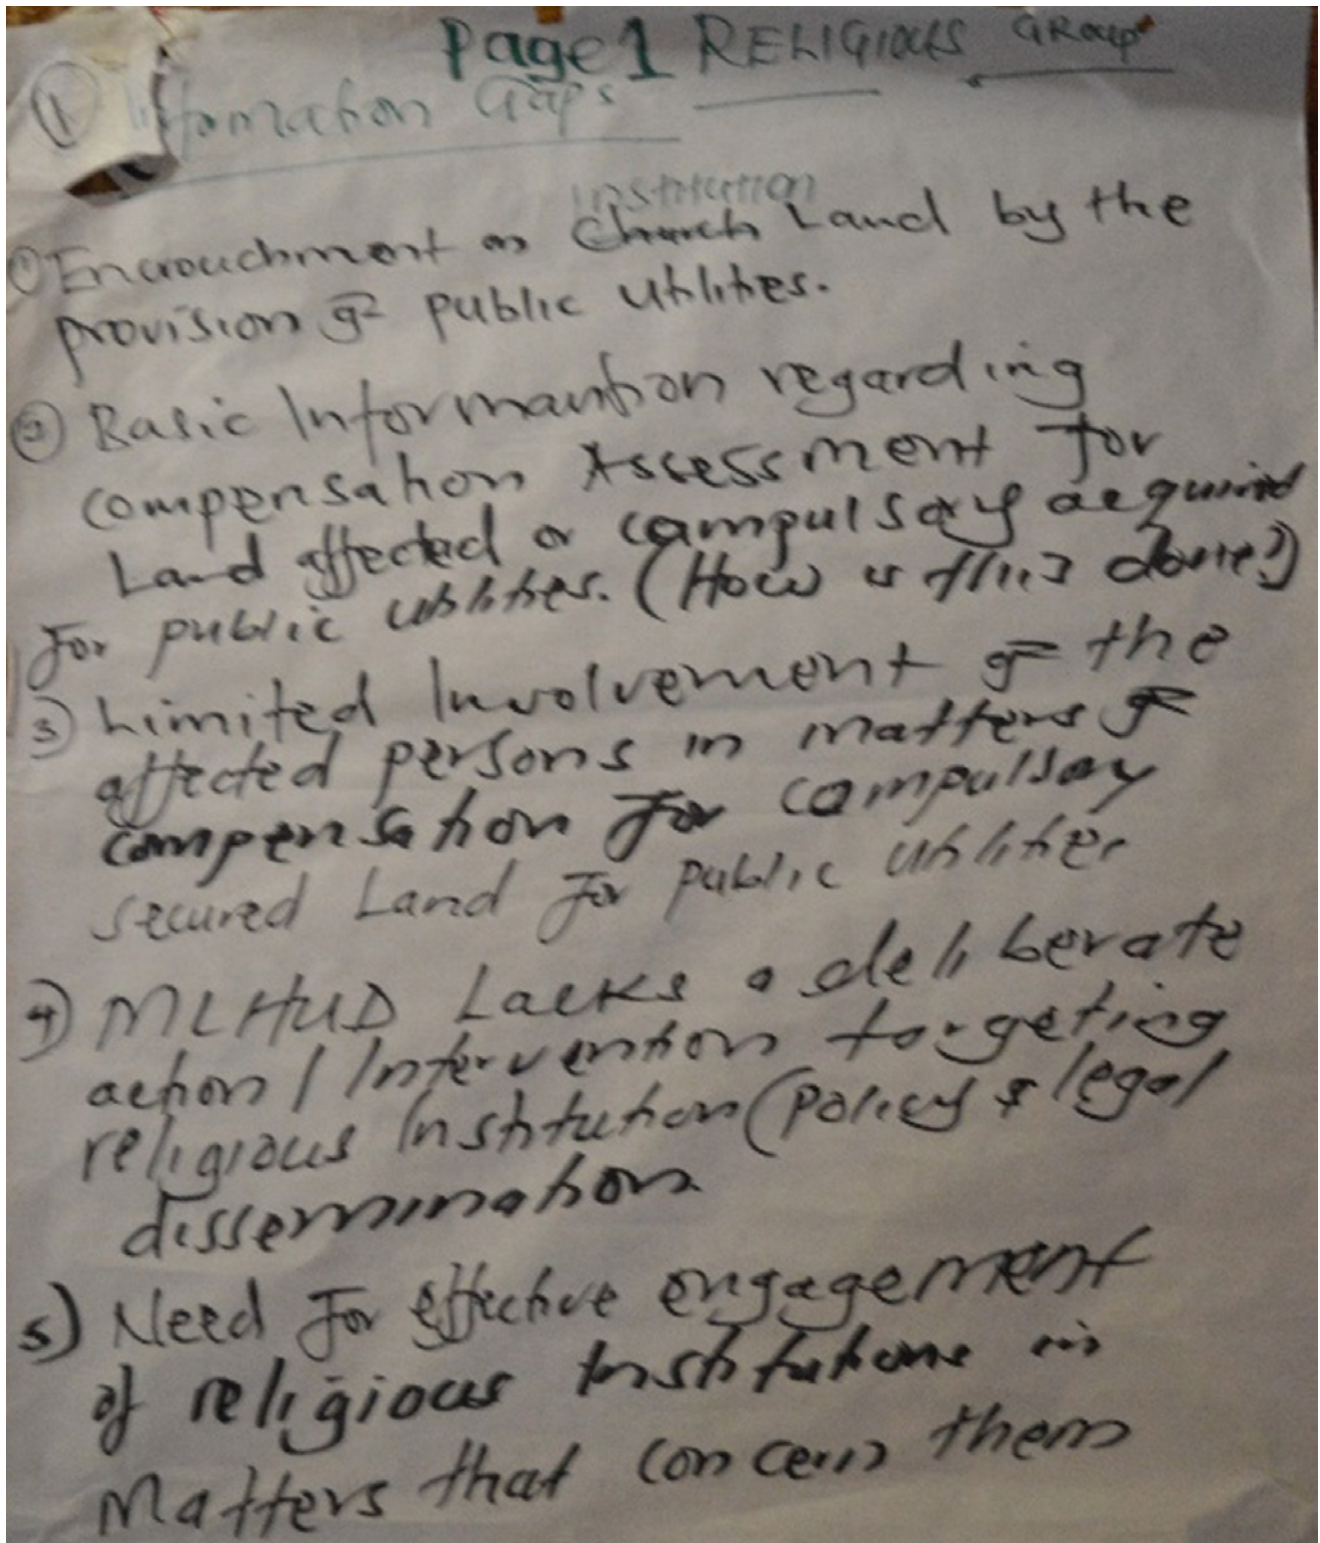 Page 1 RELIGIOUS GROUP
① Information Gaps
institution
① Encrouchment on Church Land by the
provision of public utilities.
② Basic Informantion regarding
compensation Assessment for
Land affected or campulsory acquired
for public utilities. (How is this done?)
③ Limited Involvement of the
affected persons in matters of
compensation for compulsory
secured Land for public utilities
4) MLHUD Lacks a deliberate
action / Intervention targeting
religious Institution (policy & legal
dissemination.
5) Need for effective engagement
of religious Institutions in
Matters that concern them